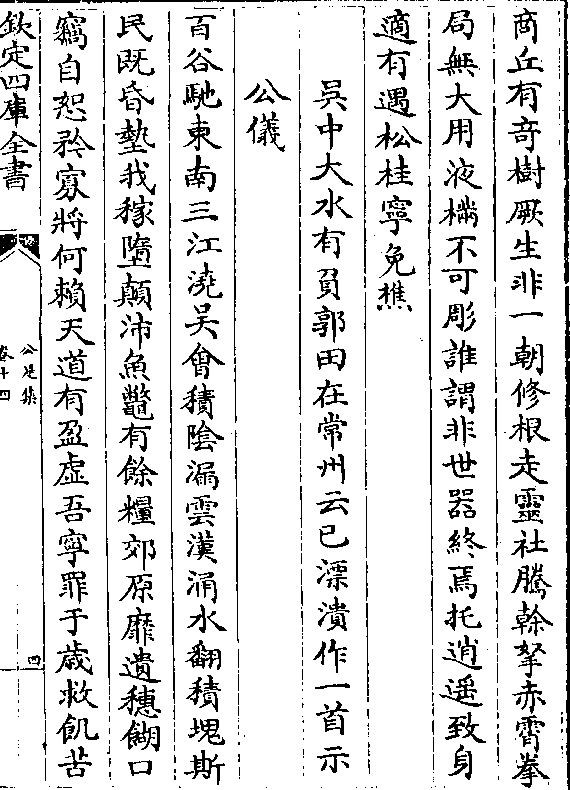 商丘有竒樹厥生非一朝修根走靈社騰榦拏赤霄拳
局無大用液樠不可彫誰謂非世器終焉托逍遥致身
適有遇松桂寧免樵
吳中大水有負郭田在常州云已漂潰作一首示
公儀
百谷馳東南三江澆吴會積陰漏雲漢涌水翻積塊斯
民既昏墊我稼墮顛沛魚鼈有餘糧郊原靡遺穗餬口
竊自恕矜寡將何賴天道有盈虚吾寧罪于歲救飢苦
欽定四庫全書
公是集
卷十四
四